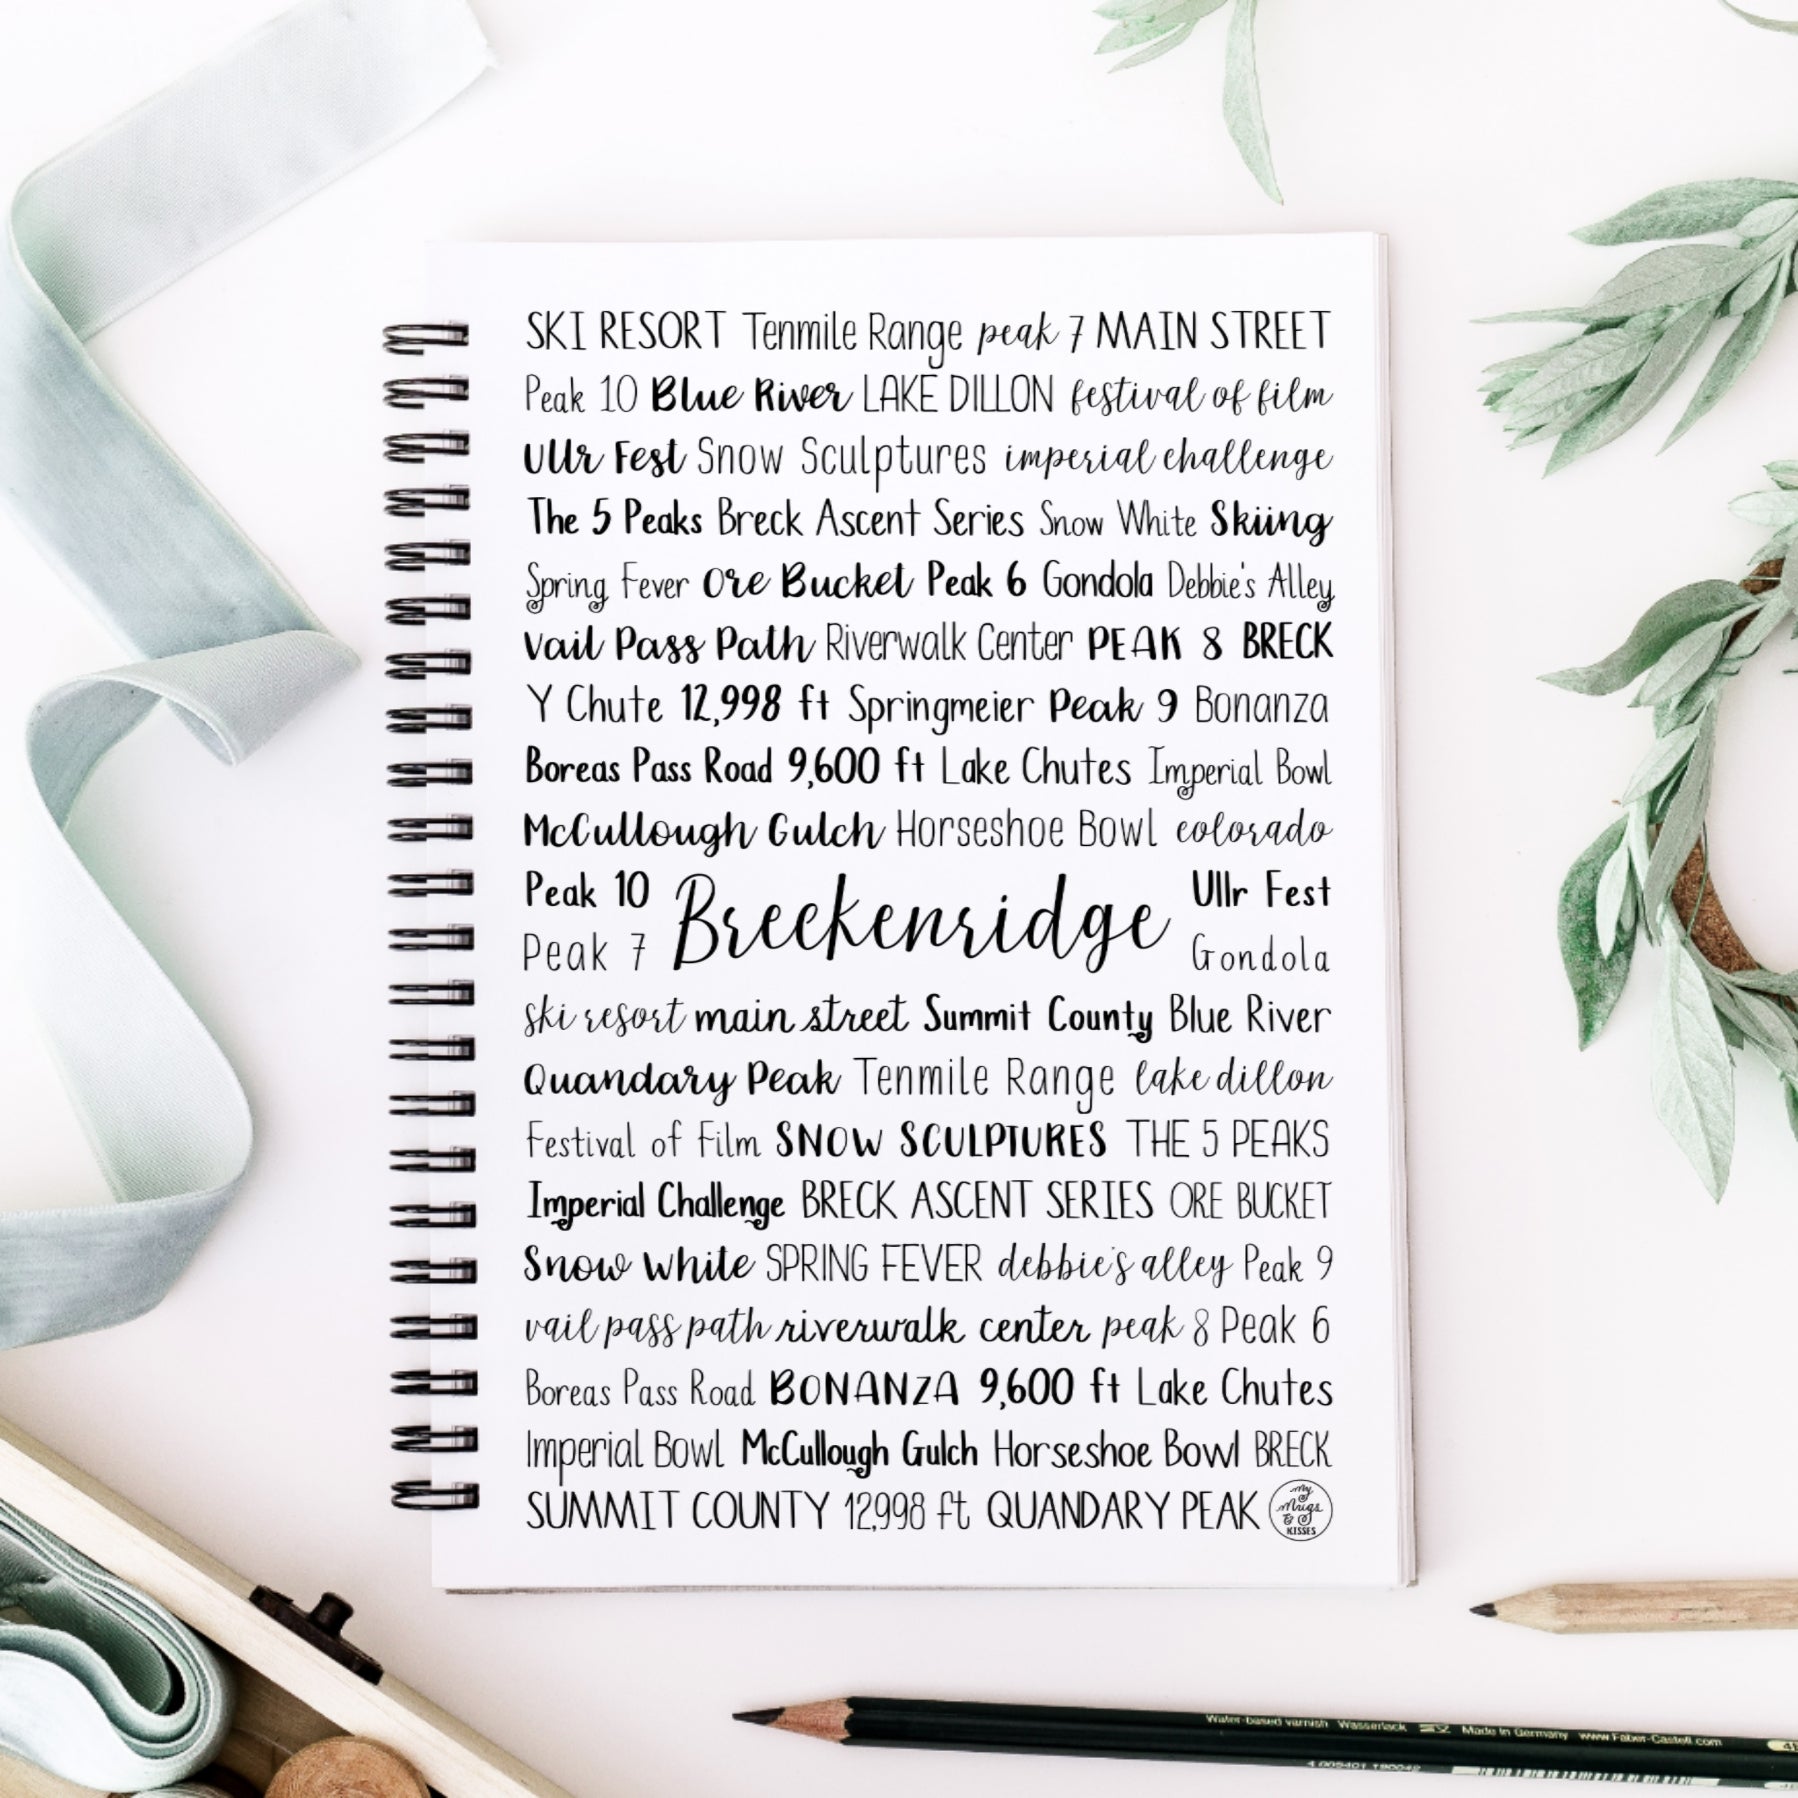 SKI RESORT Tenmile Range peak 7 MAIN STREET
Peak 10 Blue River LAKE DILLON festival of film
Ullr Fest Snow Sculptures imperial challenge
The 5 Peaks Breck Ascent Series Snow White Skiing
Spring Fever Ore Bucket Peak 6 Gondola Debbie's Alley
Vail Pass Path Riverwalk Center PEAK 8 BRECK
Y Chute 12,998 ft Springmeier Peak 9 Bonanza
Boreas Pass Road 9,600 ft Lake Chutes Imperial Bowl
McCullough Gulch Horseshoe Bowl colorado
Peak 10 Breckenridge Ullr Fest
Peak 7 Gondola
ski resort main street Summit County Blue River
Quandary Peak Tenmile Range lake dillon
Festival of Film SNOW SCULPTURES THE 5 PEAKS
Imperial Challenge BRECK ASCENT SERIES ORE BUCKET
Snow White SPRING FEVER debbie's alley Peak 9
vail pass path riverwalk center peak 8 Peak 6
Boreas Pass Road BONANZA 9,600 ft Lake Chutes
Imperial Bowl McCullough Gulch Horseshoe Bowl BRECK
SUMMIT COUNTY 12,998 ft QUANDARY PEAK
My
Mugs
&
KISSES
Water-based varnish Wasserlack Made in Germany www.Faber-Castell.com
4 005401 190042